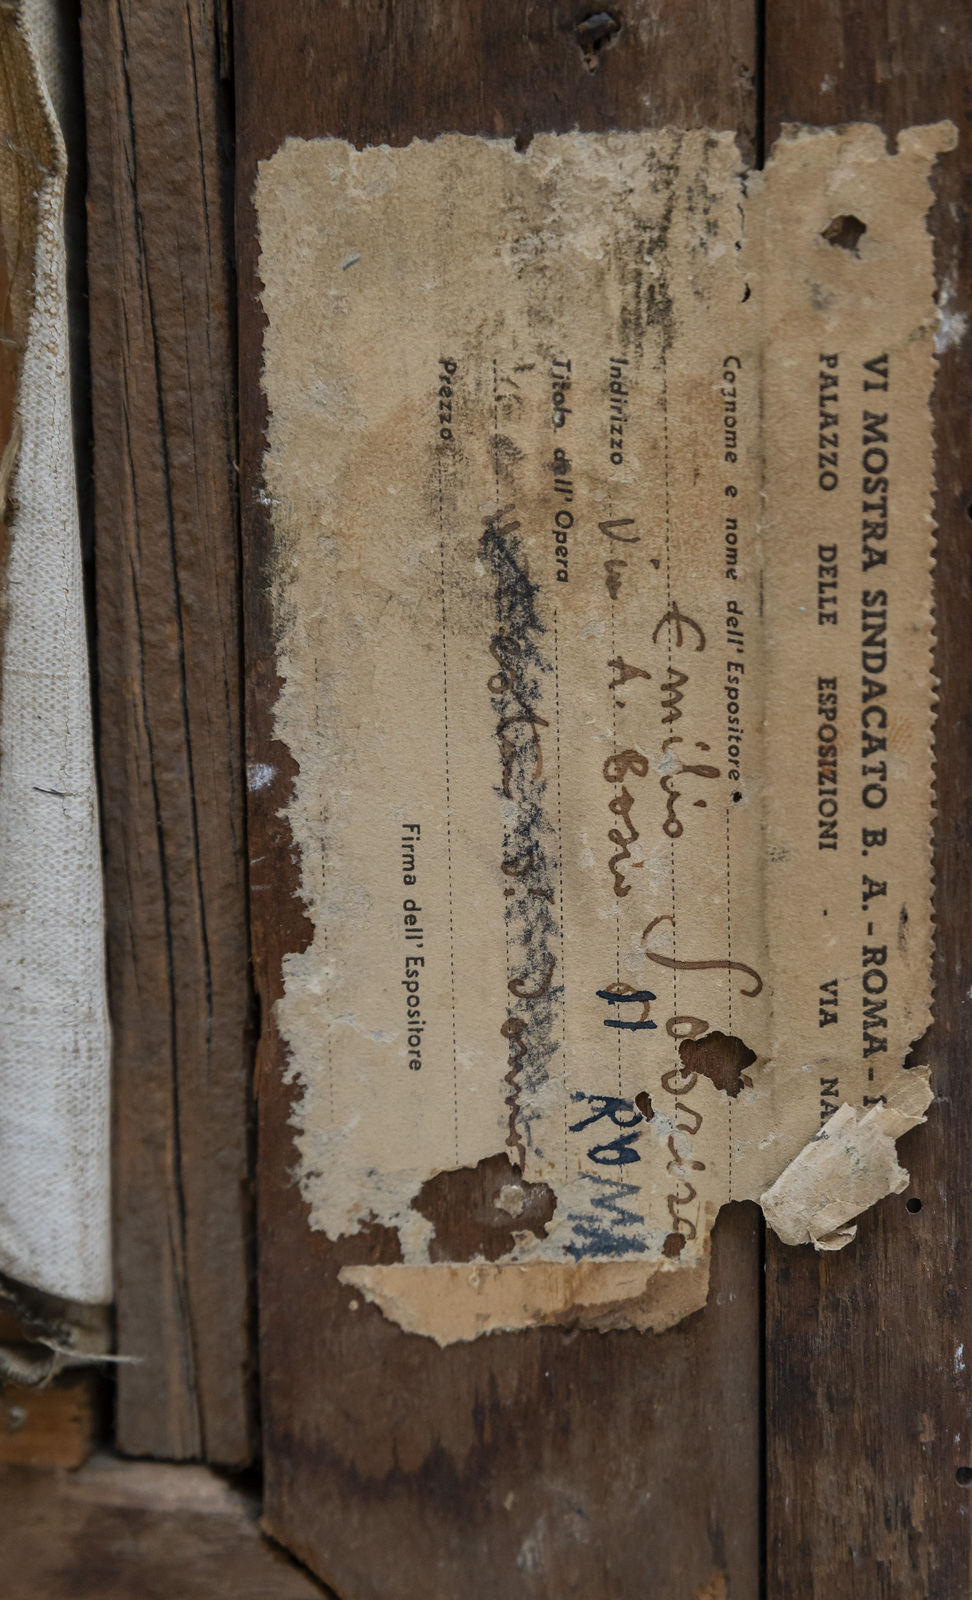 VI MOSTRA SINDACATO B. A. - ROMA -
PALAZZO DELLE ESPOSIZIONI - VIA NA
Cognome e nome dell' Espositore
Emilio
Indirizzo Via A. Bosio 11 ROMA
Titolo dell' Opera
Prezzo
Firma dell' Espositore